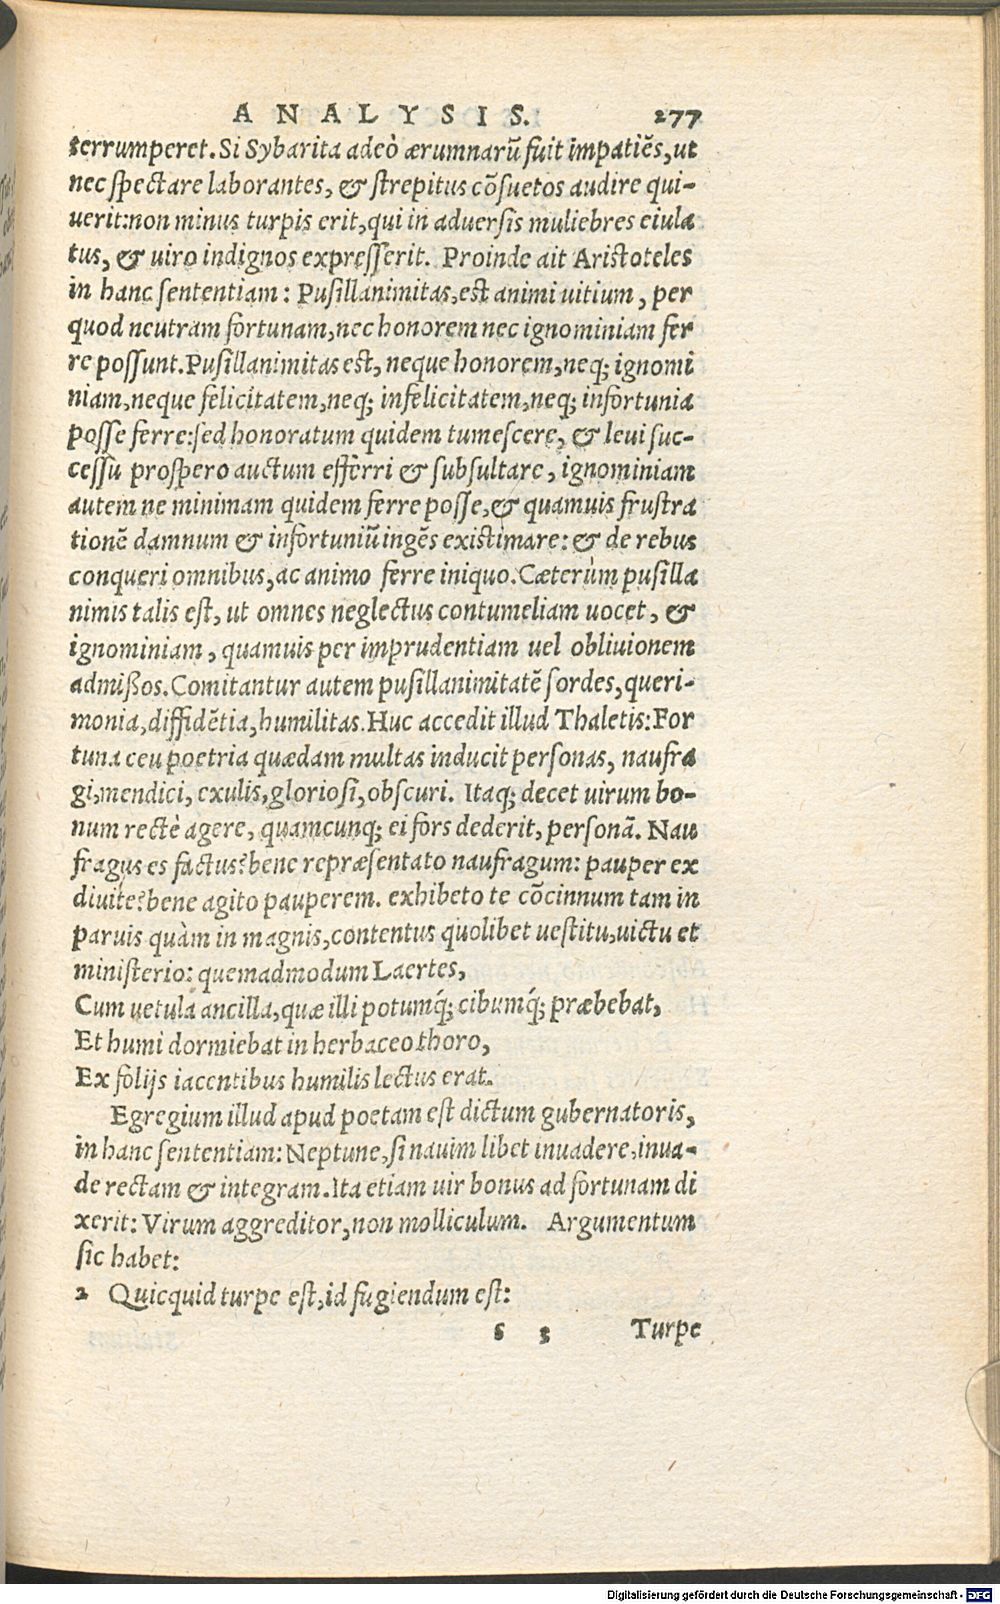 ANALYSIS. 277
terrumperet. Si Sybarita adeò ærumnarũ fuit impatiẽs, ut
nec spectare laborantes, & strepitus cõsuetos audire qui-
uerit: non minus turpis erit, qui in aduersis muliebres eiula
tus, & uiro indignos expresserit. Proinde ait Aristoteles
in hanc sententiam: Pusillanimitas, est animi uitium, per
quod neutram fortunam, nec honorem nec ignominiam fer
re possunt. Pusillanimitas est, neque honorem, neq; ignomi
niam, neque felicitatem, neq; infelicitatem, neq; infortunia
posse ferre: sed honoratum quidem tumescere, & leui suc-
cessu prospero auctum efferri & subsultare, ignominiam
autem ne minimam quidem ferre posse, & quamuis frustra
tionẽ damnum & infortuniũ ingẽs existimare: & de rebus
conqueri omnibus, ac animo ferre iniquo. Cæterùm pusilla
nimis talis est, ut omnes neglectus contumeliam uocet, &
ignominiam, quamuis per imprudentiam uel obliuionem
admißos. Comitantur autem pusillanimitatẽ sordes, queri-
monia, diffidẽtia, humilitas. Huc accedit illud Thaletis: For
tuna ceu poetria quædam multas inducit personas, naufra
gi, mendici, exulis, gloriosi, obscuri. Itaq; decet uirum bo-
num rectè agere, quamcunq; ei fors dederit, personã. Nau
fragus es factus? bene repræsentato naufragum: pauper ex
diuite? bene agito pauperem. exhibeto te cõcinnum tam in
paruis quàm in magnis, contentus quolibet uestitu, uictu et
ministerio: quemadmodum Laertes,
Cum uetula ancilla, quæ illi potumq́; cibumq́; præbebat,
Et humi dormiebat in herbaceo thoro,
Ex folijs iacentibus humilis lectus erat.
Egregium illud apud poetam est dictum gubernatoris,
in hanc sententiam: Neptune, si nauim libet inuadere, inua-
de rectam & integram. Ita etiam uir bonus ad fortunam di
xerit: Virum aggreditor, non molliculum. Argumentum
sic habet:
2 Quicquid turpe est, id fugiendum est:
s 3 Turpe
Digitalisierung gefördert durch die Deutsche Forschungsgemeinschaft - DFG